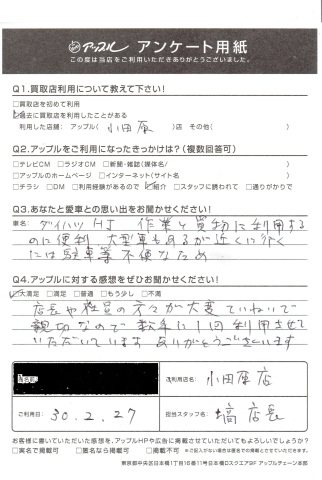 アップル アンケート用紙
この度は当店をご利用いただきありがとうございました。
Q1.買取店利用について教えて下さい!
□買取店を初めて利用
☑過去に買取店を利用したことがある
利用した店舗: アップル( 小田原 )店 その他( )
Q2.アップルをご利用になったきっかけは?(複数回答可)
□テレビCM □ラジオCM □新聞・雑誌(媒体名/ )
□アップルのホームページ □インターネット(サイト名 )
□チラシ □DM □利用経験があるので ☑紹介 □スタッフに誘われて □通りがかりで
Q3.あなたと愛車との思い出をお聞かせください!
車名: ダイハツ 作業と買物に利用する
のに便利 大型車もあるが近くに行く
には駐車等不便なため
Q4.アップルに対する感想をぜひお聞かせください!
☑大満足 □満足 □普通 □もう少し □不満
店長や社員の方々が大変ていねいで
親切なので 転手に1回利用させて
いただいています ありがとうございます
ご利用店名: 小田原店
ご利用日: 30.2.27
担当スタッフ名: 店長
お客様に書いていただいた感想を、アップルHPや広告に掲載させていただいてもよろしいでしょうか?
□実名で掲載可 □匿名なら掲載可 □掲載不可 ※ご記入がない場合は匿名での掲載とさせていただきます。
東京都中央区日本橋1丁目16番11号日本橋Dスクエア9F アップルチェーン本部